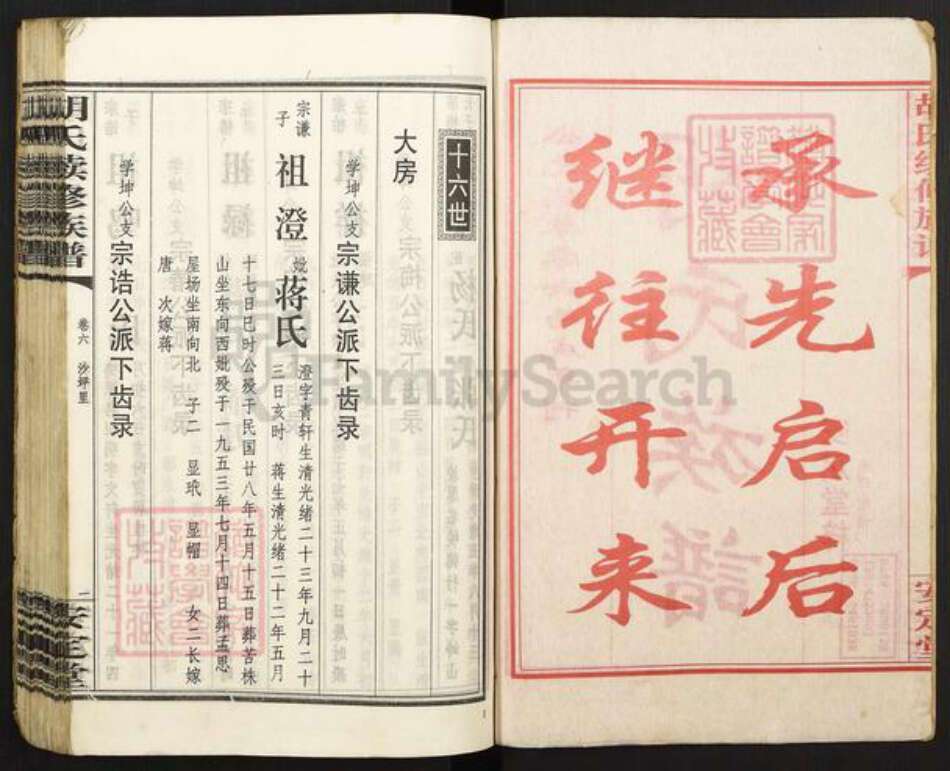 承先启后
继往开来
胡氏续修族谱
安定堂
十六世
大房
学坤公支 宗谦公派下齿录
宗谦子 祖澄 妣蒋氏
澄字青轩生清光绪二十三年九月二十
三日亥时 蒋生清光绪二十二年五月
十七日巳时公殁于民国廿八年五月十五日葬苦株
山坐东向西妣殁于一九五三年七月十四日葬孟思
屋场坐南向北 子二 显珉 显帽 女二长嫁
唐 次嫁蒋
学坤公支 宗诰公派下齿录
胡氏续修族谱
卷六 沙坪里
二
安定堂
FamilySearch